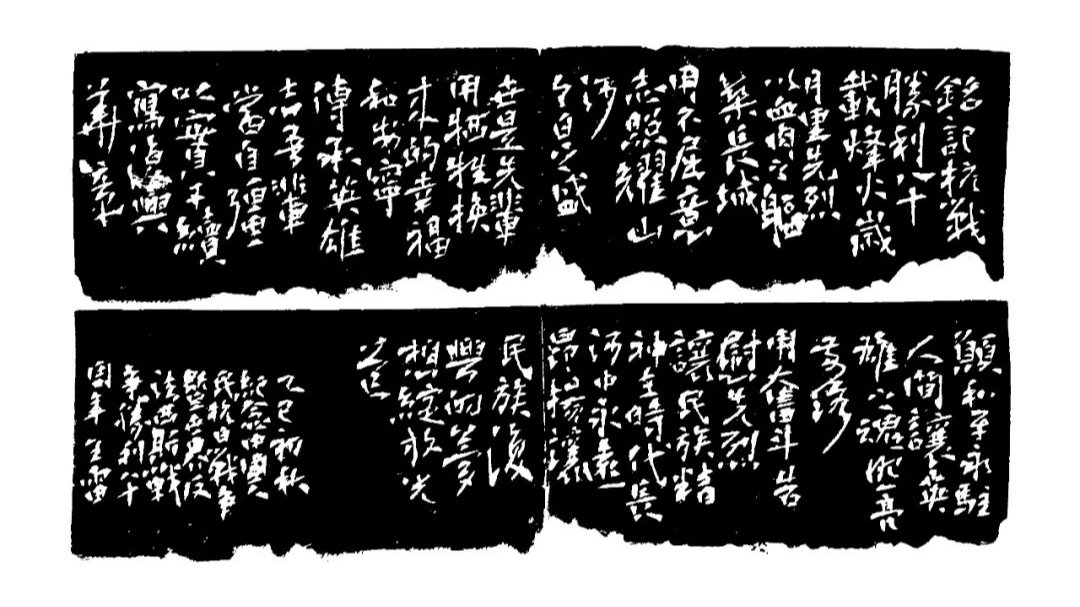 銘記抗戰
勝利八十
載烽火歲
月裏先烈
以血肉之軀
築長城
用不屈意
志照耀山
河
今日之盛
世是先輩
用犧牲换
来的幸福
和安寧
傳承英雄
志吾輩
當自彊
以實幹續
寫復興
華章
願和平永駐
人間讓英
雄之魂照亮

用奮鬥告
慰先烈
讓民族精
神在時代長
河中永遠
昂揚讓
民族復
興的夢
想綻放光
芒
乙巳初秋
紀念中國人
民抗日戰爭
暨世界反
法西斯戰
争勝利八十
周年